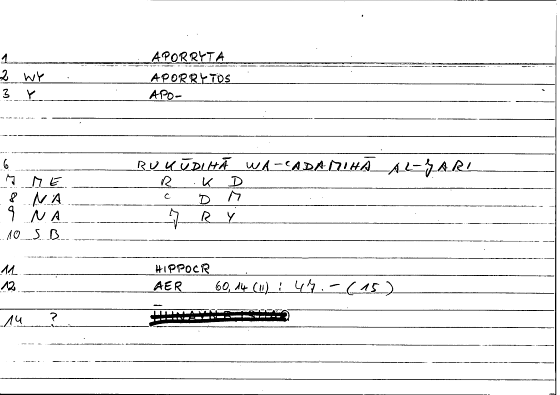 1 APORRYTA
2 WY APORRYTOS
3 Y APO-
6 RUKŪDIHĀ WA-CADAMIHĀ AL-JARI
7 ME R K D
8 NA C D M
9 NA J R Y
10 SB
11 HIPPOCR
12 AER 60,14 (11) : 47.-(15)
14 ?